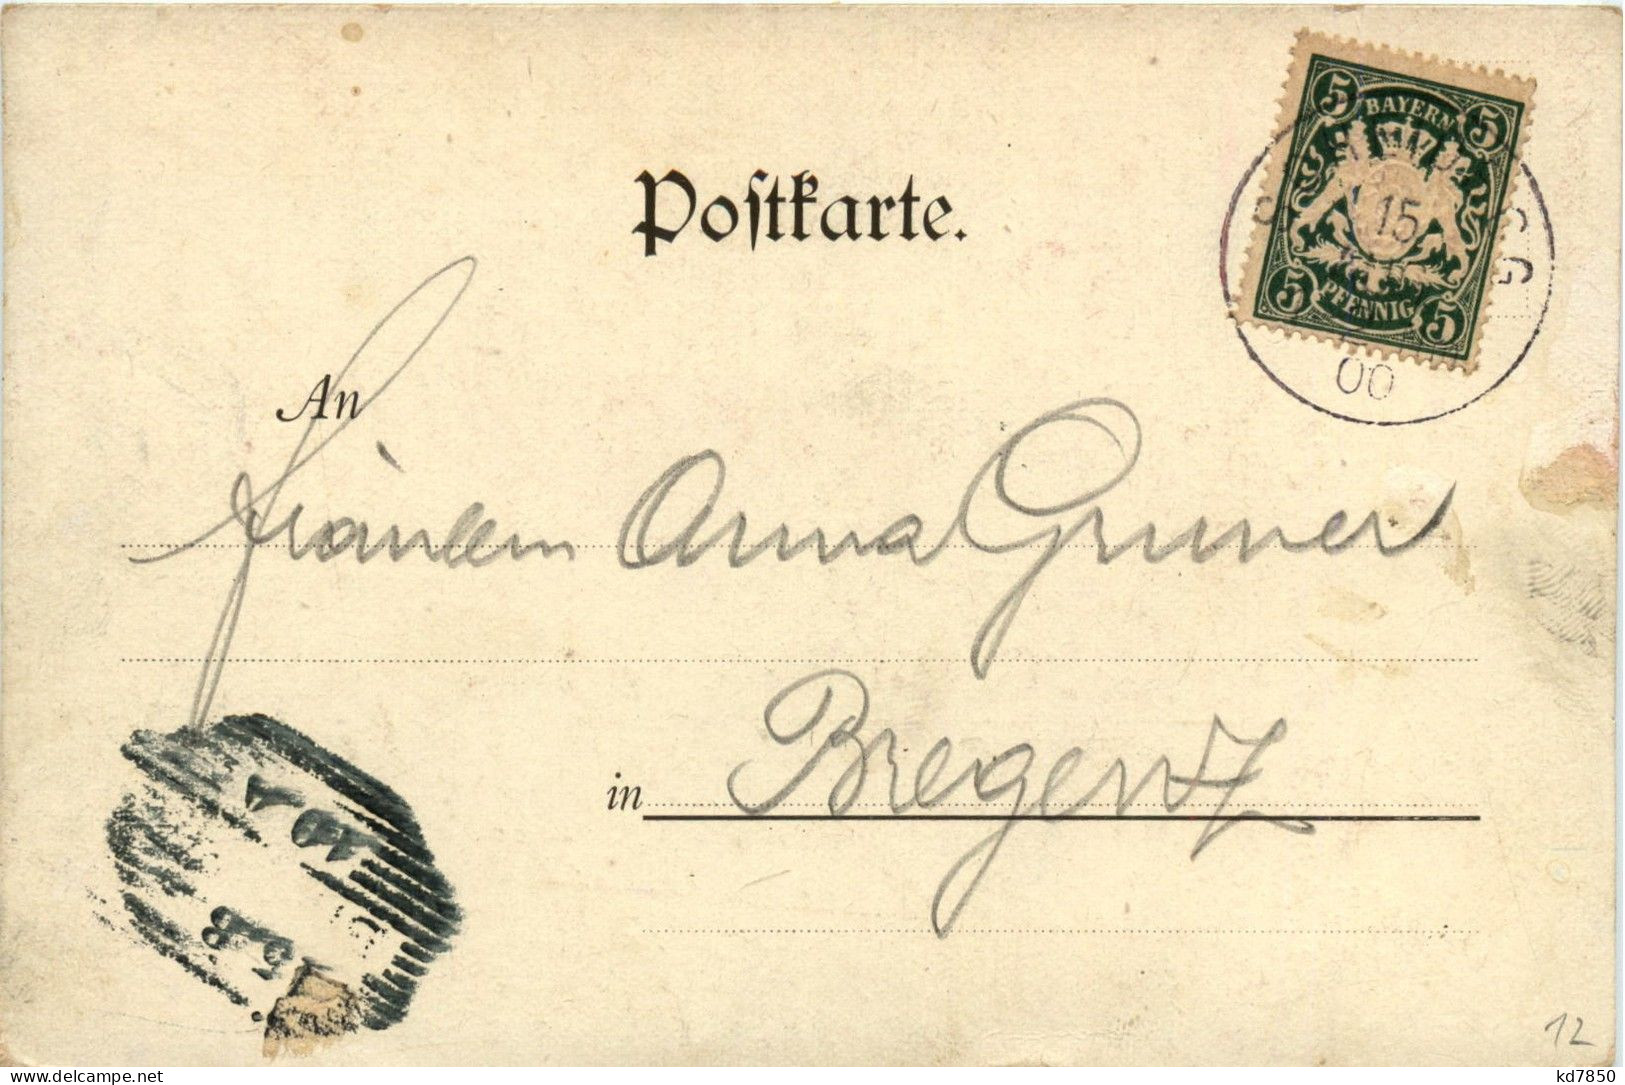 5 BAYERN 5
15
5 PFENNIG 5
00
Postkarte.
An
Fräulein Anna Gruner
in Bregenz
12
kd7850